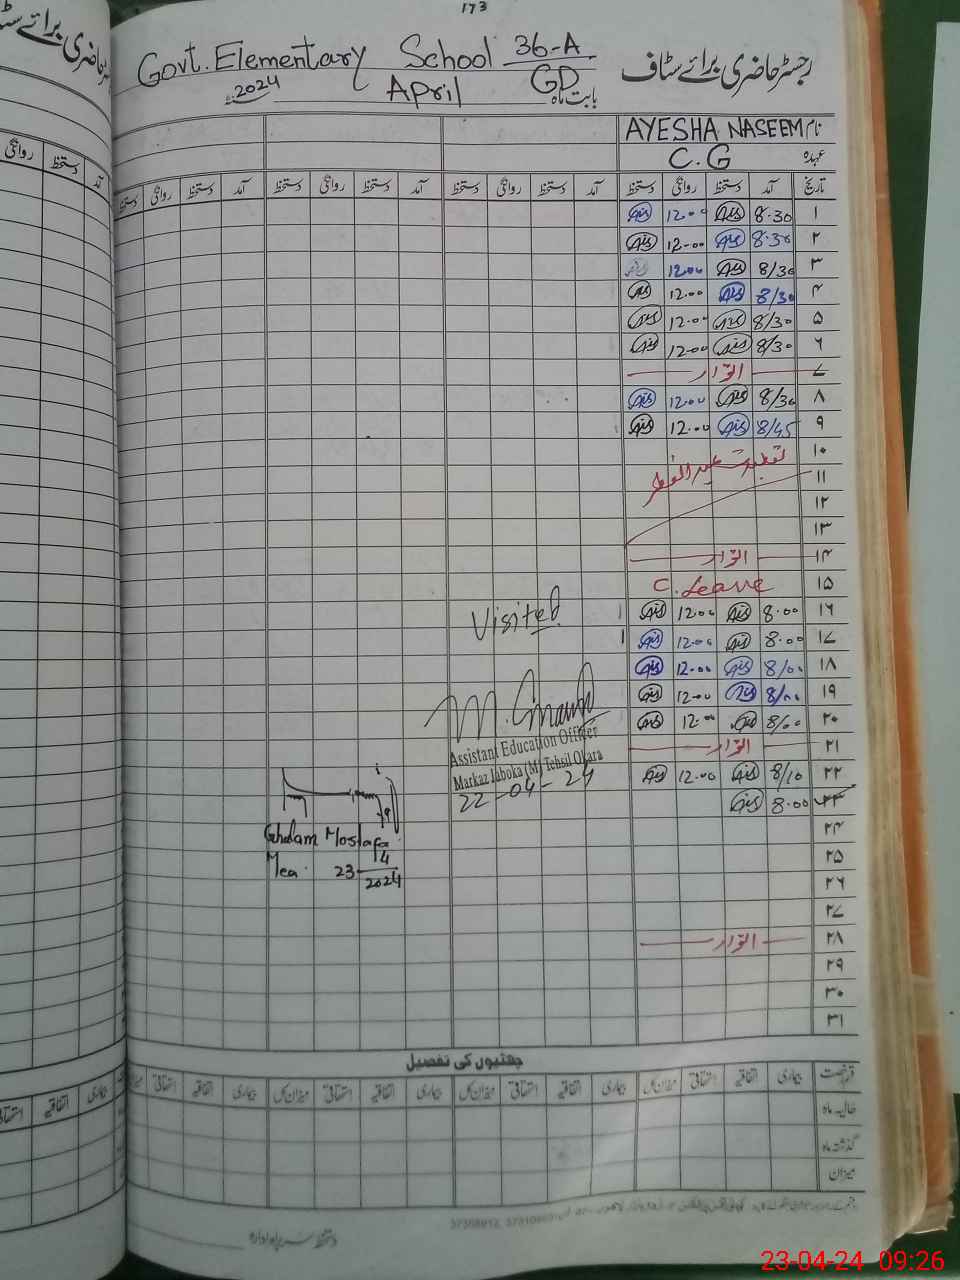 173
Govt. Elementary School 36-A GD رجسٹر حاضری برائے سٹاف
2024 April بابت ماہ
AYESHA NASEEM نام
C.G عہدہ
تاریخ آمد دستخط روانگی دستخط آمد دستخط روانگی دستخط آمد دستخط روانگی دستخط آمد دستخط روانگی دستخط
۱ 8.30 12.00
۲ 8.30 12.00
۳ 8/30 12.00
۴ 8/30 12.00
۵ 8/30 12.00
۶ 8/30 12.00
۷ اتوار
۸ 8/30 12.00
۹ 8/45 12.00
۱۰ تعطیلات عید الفطر
۱۱
۱۲
۱۳
۱۴ اتوار
۱۵ C. Leave
۱۶ 8.00 12.00
۱۷ 8.00 12.00
۱۸ 8/00 12.00
۱۹ 8/00 12.00
۲۰ 8/00 12.00
۲۱ اتوار
۲۲ 8/10 12.00
۲۳ 8.00
۲۴
۲۵
۲۶
۲۷
۲۸ اتوار
۲۹
۳۰
۳۱
Visited
Assistant Education Officer
Markaz Jaboka (M) Tehsil Okara
22-04-24
Ghulam Mostafa
Mea 23-4-2024
چھٹیوں کی تفصیل
قسم رخصت بیماری اتفاقیہ استحقاقی میزان کل بیماری اتفاقیہ استحقاقی میزان کل بیماری اتفاقیہ استحقاقی میزان کل بیماری اتفاقیہ استحقاقی
حالیہ ماہ
گذشتہ ماہ
میزان
دستخط سربراہ ادارہ
23-04-24 09:26